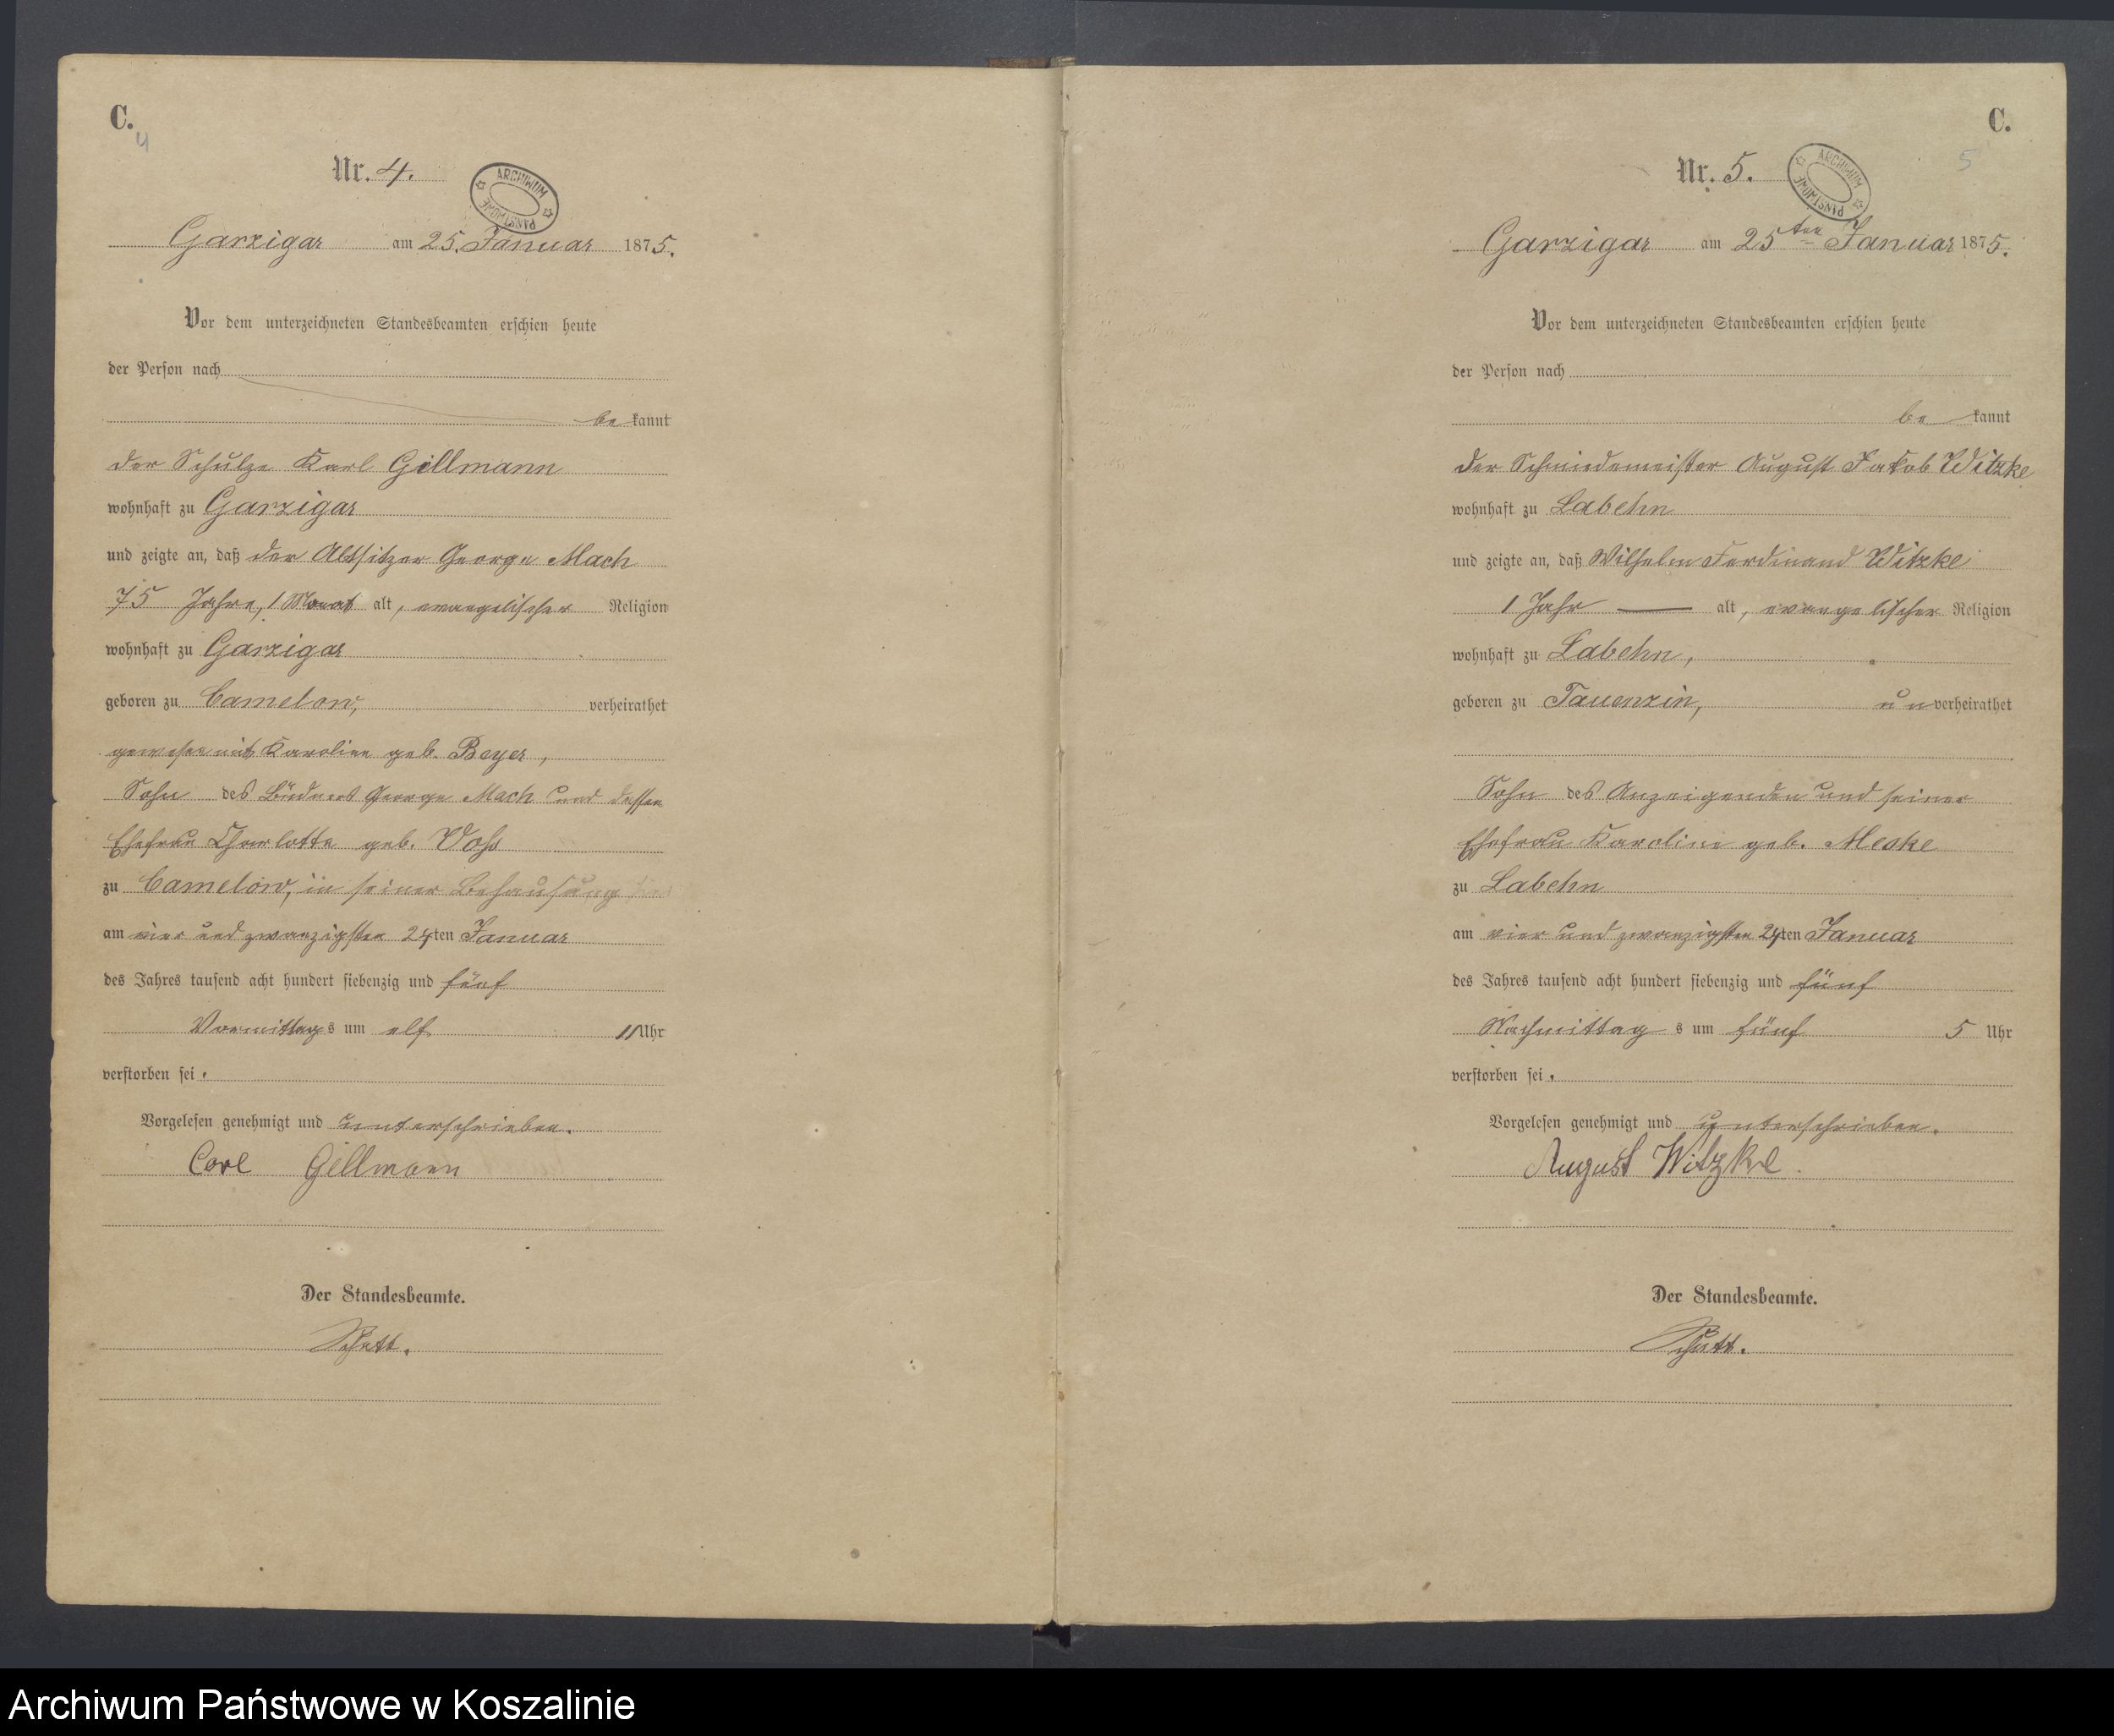 C.
4
Nr. 4.
ARCHIWUM PAŃSTWOWE
Garzigar am 25. Januar 1875.
Vor dem unterzeichneten Standesbeamten erschien heute
der Person nach
be kannt
der Schulze Karl Gillmann
wohnhaft zu Garzigar
und zeigte an, daß der Altsitzer George Mach
75 Jahre, 1 Monat alt, evangelischer Religion
wohnhaft zu Garzigar
geboren zu Camelow, verheirathet
gewesen mit Karoline geb. Beyer,
Sohn des Büdners George Mach und dessen
Ehefrau Charlotte geb. Voss
zu Camelow, in seiner Behausung
am vier und zwanzigsten 24ten Januar
des Jahres tausend acht hundert siebenzig und fünf
Vormittags um elf 11 Uhr
verstorben sei.
Vorgelesen genehmigt und unterschrieben.
Carl Gillmann
Der Standesbeamte.
C.
5
Nr. 5.
ARCHIWUM PAŃSTWOWE
Garzigar am 25ten Januar 1875.
Vor dem unterzeichneten Standesbeamten erschien heute
der Person nach
be kannt
der Schmiedemeister August Jakob Witzke
wohnhaft zu Labehn
und zeigte an, daß Wilhelm Ferdinand Witzke
1 Jahr — alt, evangelischer Religion
wohnhaft zu Labehn,
geboren zu Tauenzin, un verheirathet
Sohn des Anzeigenden und seiner
Ehefrau Karoline geb. Meske
zu Labehn
am vier und zwanzigsten 24ten Januar
des Jahres tausend acht hundert siebenzig und fünf
Nachmittag s um fünf 5 Uhr
verstorben sei.
Vorgelesen genehmigt und unterschrieben.
August Witzke.
Der Standesbeamte.
Archiwum Państwowe w Koszalinie